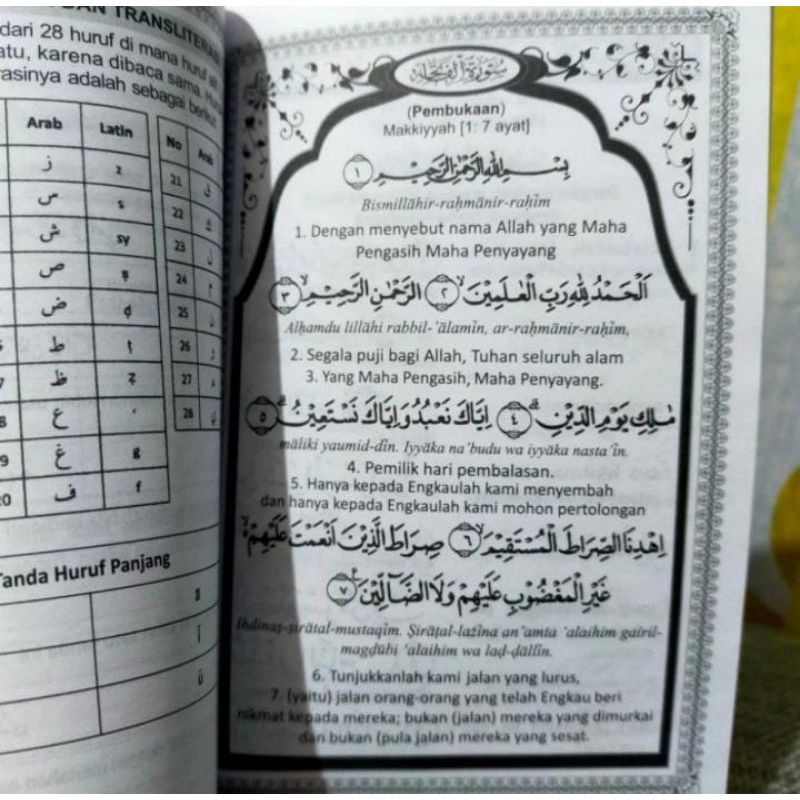 DAN TRANSLITERASI
dari 28 huruf di mana huruf
atu, karena dibaca sama.
rasinya adalah sebagai berikut
Arab Latin
ز z
س s
ش sy
ص ṣ
ض ḍ
ط ṭ
ظ ẓ
ع ‘
غ g
ف f
No
21 ق
22
23
24
25
26
27
28
Tanda Huruf Panjang
ā
ī
ū
سورة الفاتحة
(Pembukaan)
Makkiyyah [1: 7 ayat]
بِسْمِ اللّٰهِ الرَّحْمٰنِ الرَّحِيْمِ ١
Bismillāhir-raḥmānir-raḥīm
1. Dengan menyebut nama Allah yang Maha
Pengasih Maha Penyayang
اَلْحَمْدُ لِلّٰهِ رَبِّ الْعٰلَمِيْنَۙ ٢ الرَّحْمٰنِ الرَّحِيْمِۙ ٣
Alḥamdu lillāhi rabbil-‘ālamīn, ar-raḥmānir-raḥīm,
2. Segala puji bagi Allah, Tuhan seluruh alam
3. Yang Maha Pengasih, Maha Penyayang.
مٰلِكِ يَوْمِ الدِّيْنِۗ ٤ اِيَّاكَ نَعْبُدُ وَاِيَّاكَ نَسْتَعِيْنُۗ ٥
māliki yaumid-dīn. Iyyāka na‘budu wa iyyāka nasta‘īn.
4. Pemilik hari pembalasan.
5. Hanya kepada Engkaulah kami menyembah
dan hanya kepada Engkaulah kami mohon pertolongan
اِهْدِنَا الصِّرَاطَ الْمُسْتَقِيْمَۙ ٦ صِرَاطَ الَّذِيْنَ اَنْعَمْتَ عَلَيْهِمْ ەۙ
غَيْرِ الْمَغْضُوْبِ عَلَيْهِمْ وَلَا الضَّاۤلِّيْنَࣖ ٧
Ihdinaṣ-ṣirāṭal-mustaqīm. Ṣirāṭal-lażīna an‘amta ‘alaihim gairil-
magḍūbi ‘alaihim wa laḍ-ḍāllīn.
6. Tunjukkanlah kami jalan yang lurus,
7. (yaitu) jalan orang-orang yang telah Engkau beri
nikmat kepada mereka; bukan (jalan) mereka yang dimurkai
dan bukan (pula jalan) mereka yang sesat.